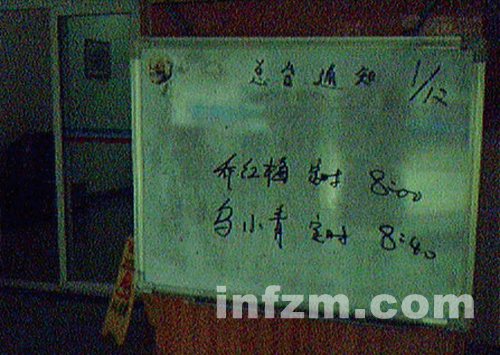 总台通知 1/12
乔红梅 定时 8:00
乌小青 定时 8:40
infzm.com